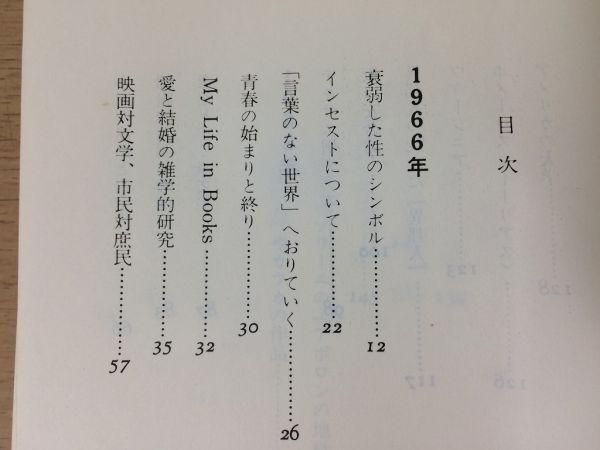 目次
1966年
衰弱した性のシンボル………………12
インセストについて………………22
「言葉のない世界」へおりていく………………26
青春の始まりと終り………………30
My Life in Books………………32
愛と結婚の雑学的研究………………35
映画対文学、市民対庶民………………57